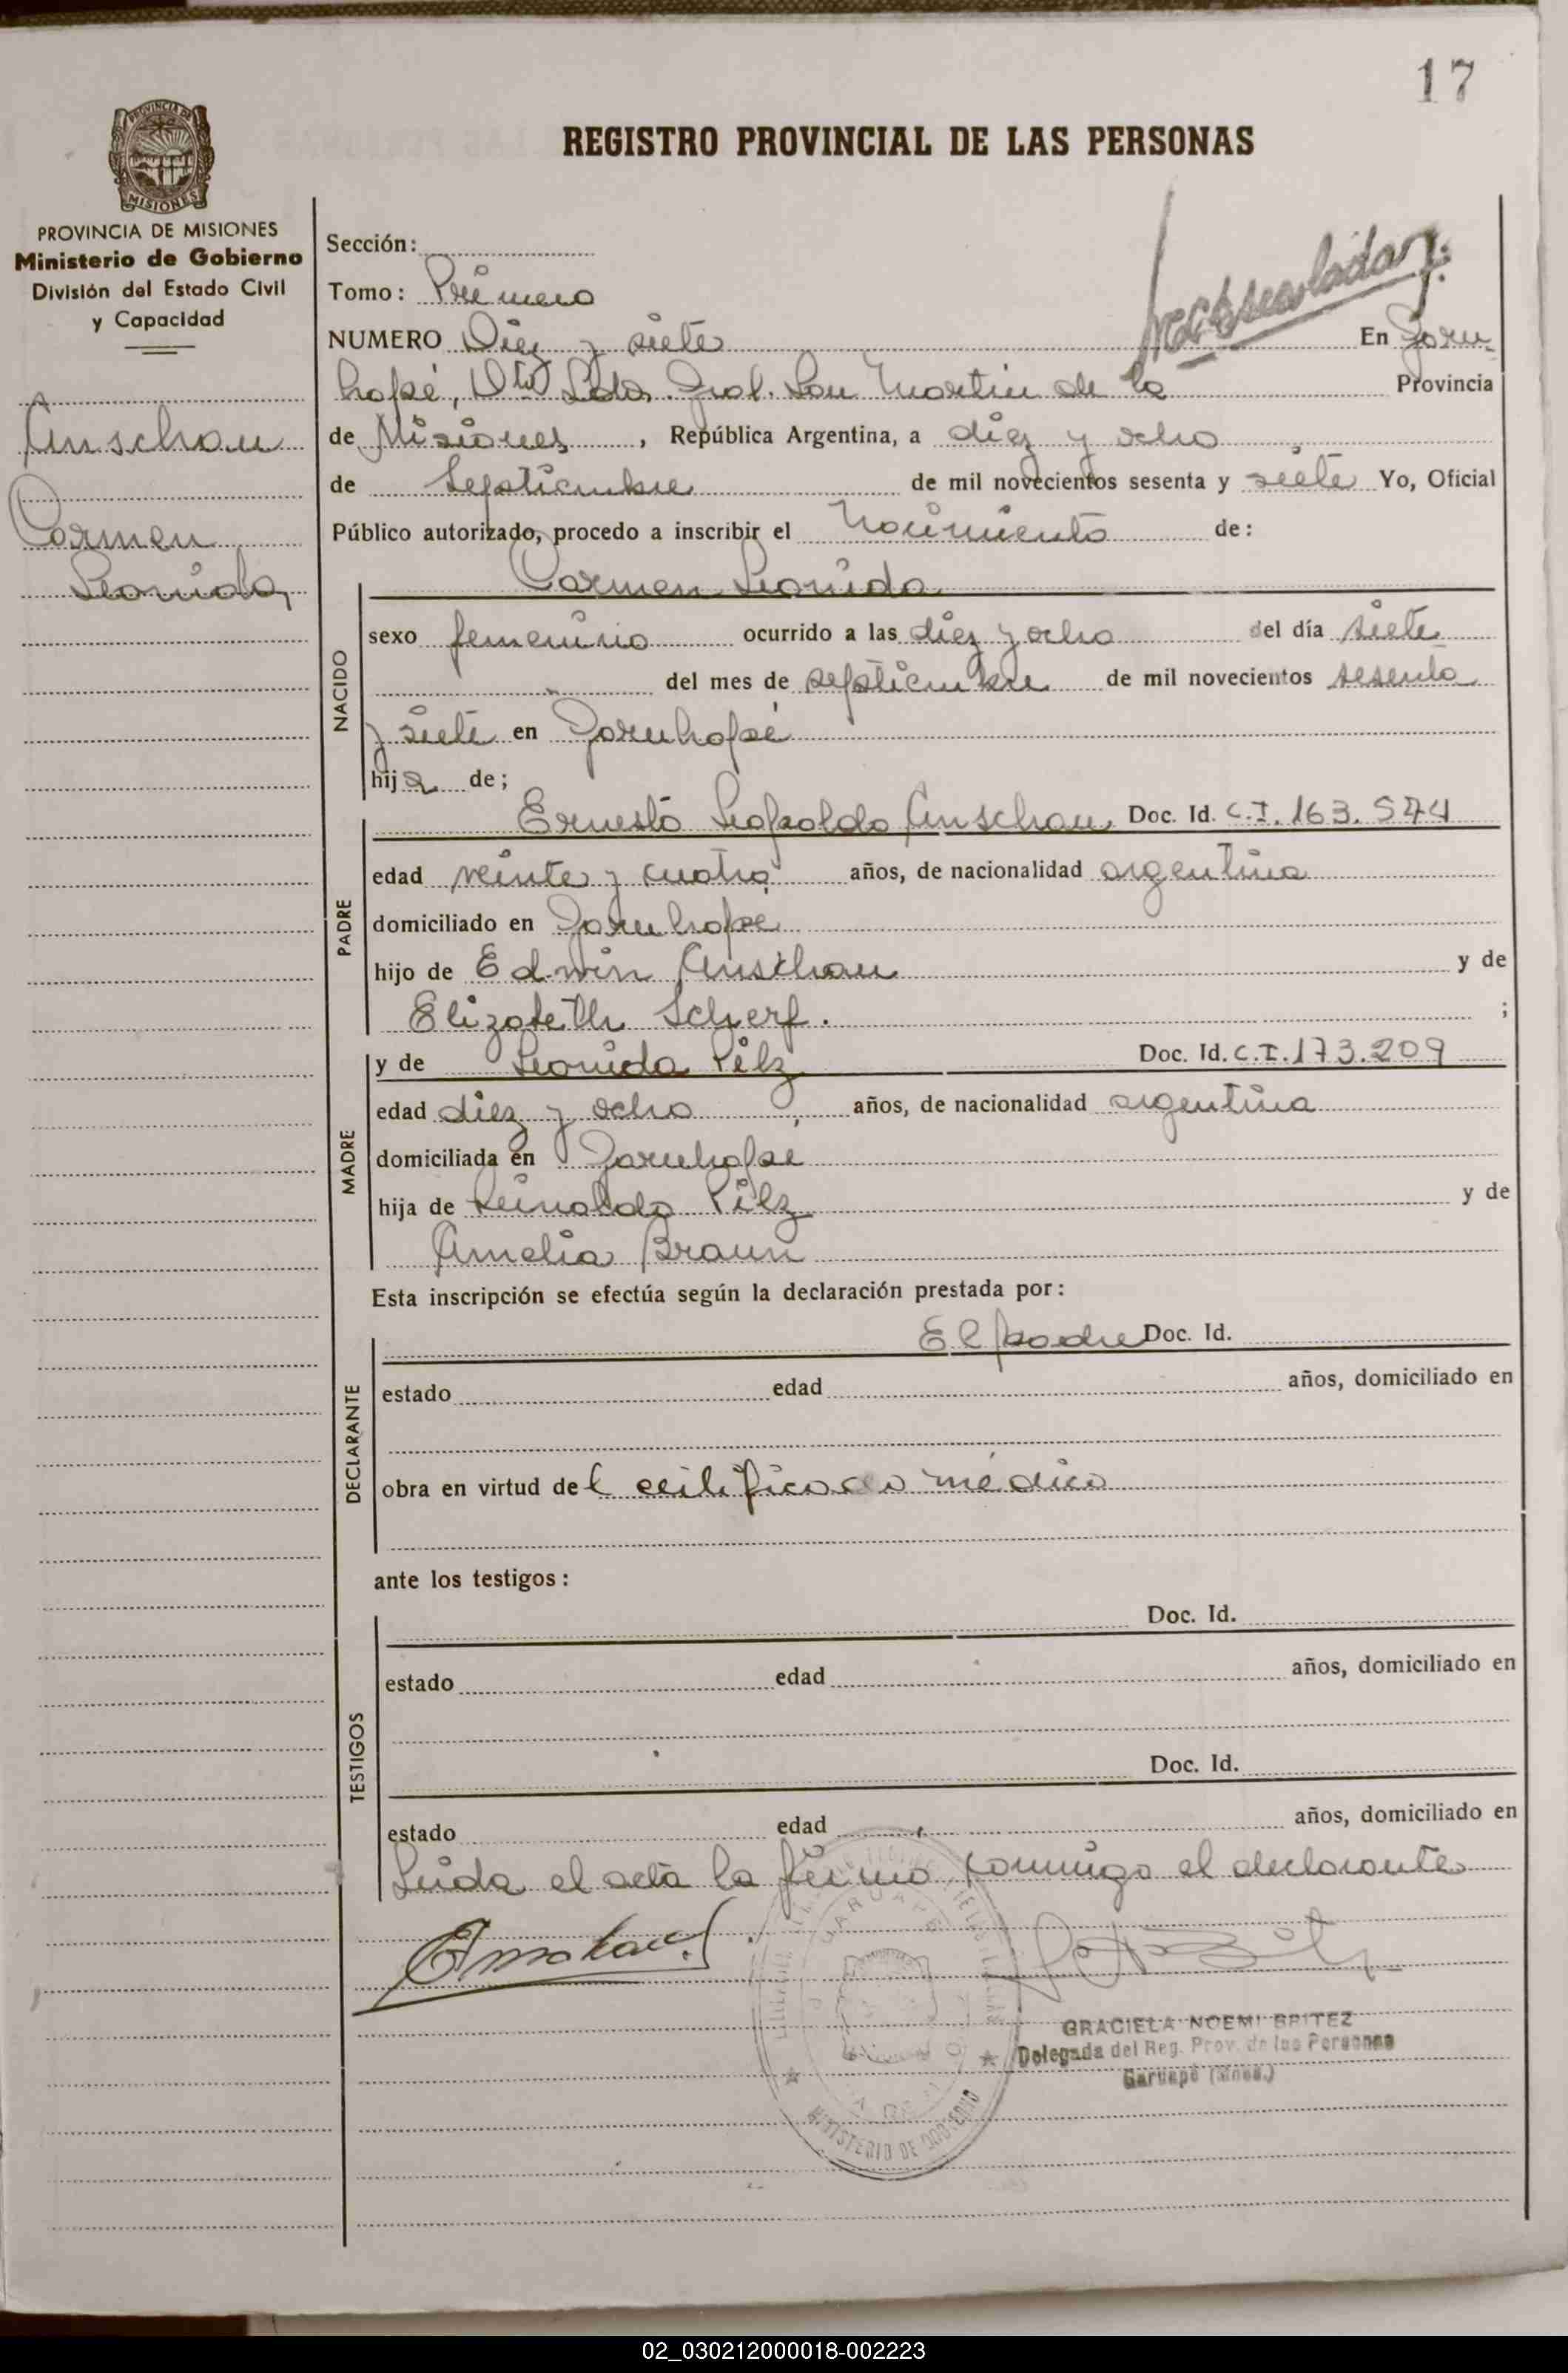 17
REGISTRO PROVINCIAL DE LAS PERSONAS
PROVINCIA DE
MISIONES
PROVINCIA DE MISIONES
Ministerio de Gobierno
División del Estado Civil
y Capacidad
Anschau
Carmen
Leonida
Sección:
Tomo: Primero
NUMERO Diez y siete En Garu-
hapé, Dto Ldor. Gral. San Martin de la Provincia
de Misiones, República Argentina, a diez y ocho
de Septiembre de mil novecientos sesenta y siete Yo, Oficial
Público autorizado, procedo a inscribir el Nacimiento de:
Carmen Leonida
NACIDO
sexo femenino ocurrido a las diez y ocho del día siete
del mes de septiembre de mil novecientos sesenta
y siete en Garuhapé
hija de;
PADRE
Ernesto Leopoldo Anschau Doc. Id. C.I. 163.544
edad veinte y cuatro años, de nacionalidad argentina
domiciliado en Garuhapé
hijo de Edwin Anschau y de
Elizabeth Scherf. ;
MADRE
y de Leonida Pilz Doc. Id. C.I. 173.209
edad diez y ocho, años, de nacionalidad argentina
domiciliada en Garuhapé
hija de Reinoldo Pilz y de
Amelia Braun
Esta inscripción se efectúa según la declaración prestada por:
DECLARANTE
El padre Doc. Id.
estado edad años, domiciliado en
obra en virtud del certificado médico
ante los testigos:
TESTIGOS
Doc. Id.
estado edad años, domiciliado en
Doc. Id.
estado edad años, domiciliado en
Leida el acta la firma conmigo el declarante
GRACIELA NOEMI BRITEZ
Delegada del Reg. Prov. de las Personas
Garuapé (Mnes.)
MINISTERIO DE GOBIERNO
02_030212000018-002223